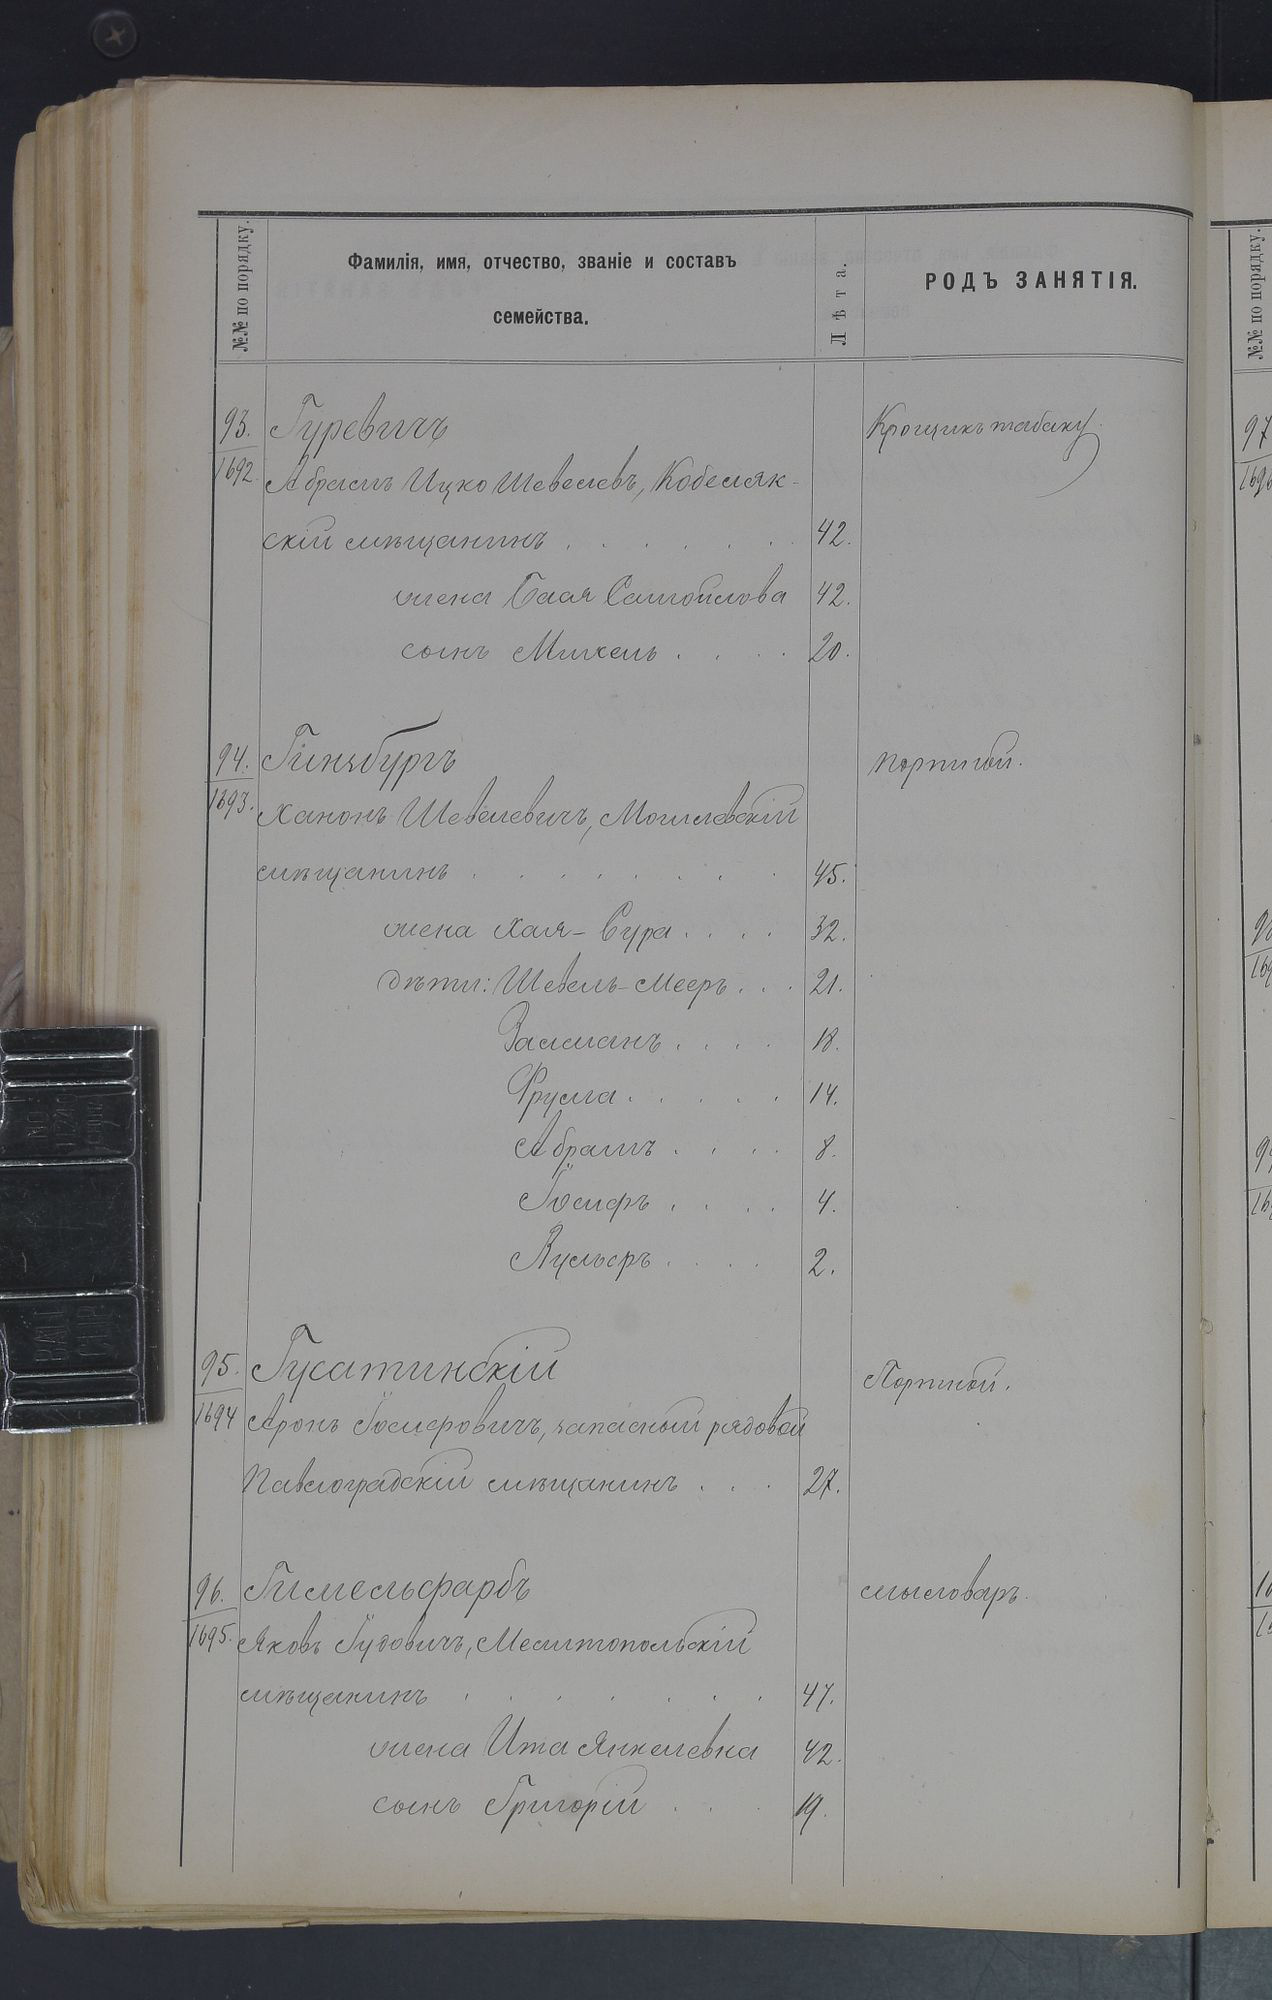 №№ по порядку.
Фамилія, имя, отчество, званіе и составъ
семейства.
Лѣта.
РОДЪ ЗАНЯТІЯ.
№№ по порядку.
93. Гуревичъ Крощикъ табаку.
1692. Абрамъ Ицко Шевелевъ, Кобеляк-
скій мѣщанинъ . . . . . . 42.
жена Бася Самойлова 42.
сынъ Михель . . . . 20.
94. Гинзбургъ портной.
1693. Ханонъ Шевелевичъ, Могилевскій
мѣщанинъ . . . . . . . 45.
жена Хая-Сура . . . . 32.
дѣти: Шевель-Мееръ . . . 21.
Залманъ . . . . 18.
Фрума . . . . . 14.
Абрамъ . . . . 8.
Іосифъ . . . . 4.
Вульфъ . . . . 2.
95. Гусатинскій Портной.
1694 Аронъ Іосифовичъ, запасный рядовой
Павлоградскій мѣщанинъ . . . 27.
96. Гимельфарбъ мыловаръ.
1695. Яковъ Іудовичъ, Мелитопольскій
мѣщанинъ . . . . . . . 47.
жена Ита Янкелевна 42.
сынъ Григорій . . . 19.
97